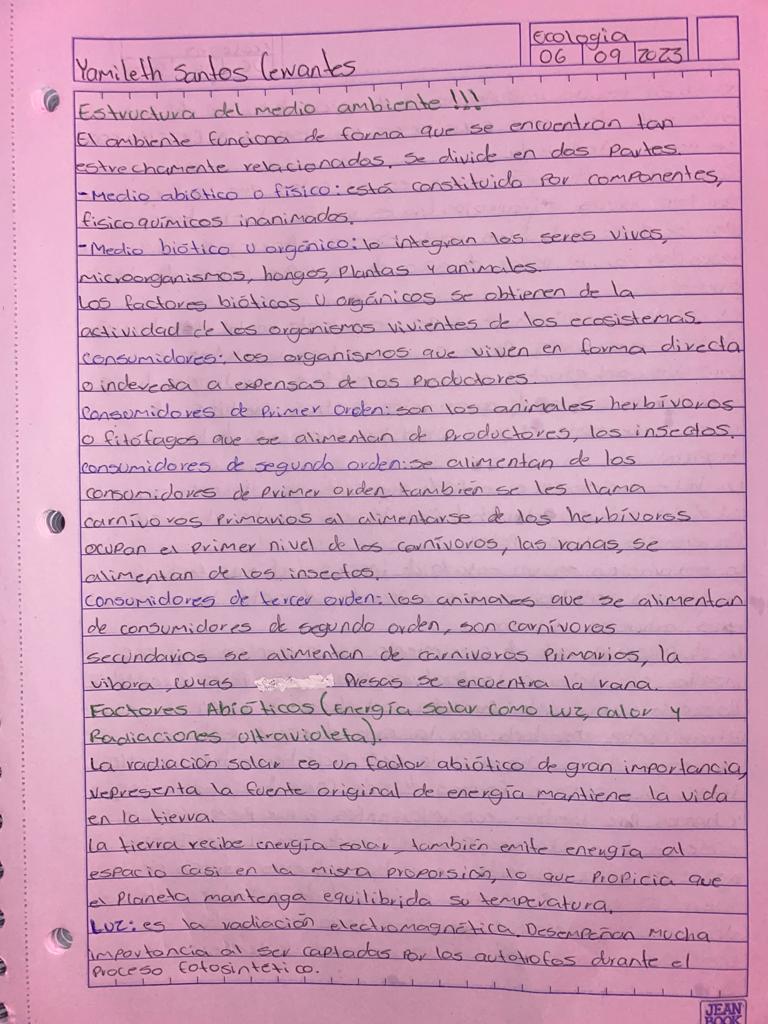 Yamileth Santos Cervantes
Ecología
06 09 2023
Estructura del medio ambiente!!!
El ambiente funciona de forma que se encuentran tan
estrechamente relacionados, se divide en dos partes.
-Medio abiótico o físico: está constituido por componentes,
fisicoquímicos inanimados.
-Medio biótico u orgánico: lo integran los seres vivos,
microorganismos, hongos, plantas y animales.
Los factores bióticos u orgánicos se obtienen de la
actividad de los organismos vivientes de los ecosistemas.
Consumidores: los organismos que viven en forma directa
o indereda a expensas de los productores.
Consumidores de primer orden: son los animales herbívoros
o fitófagos que se alimentan de productores, los insectos.
Consumidores de segundo orden: se alimentan de los
consumidores de primer orden también se les llama
carnívoros primarios al alimentarse de los herbívoros
ocupan el primer nivel de los carnívoros, las ranas, se
alimentan de los insectos.
Consumidores de tercer orden: los animales que se alimentan
de consumidores de segundo orden, son carnívoros
secundarios se alimentan de carnivoros primarios, la
vibora, cuyas presas se encuentra la rana.
Factores Abióticos (Energía solar como luz, calor y
Radiaciones ultravioleta).
La radiación solar es un factor abiótico de gran importancia,
representa la fuente original de energía mantiene la vida
en la tierra.
La tierra recibe energía solar, también emite energía al
espacio casi en la misma proporsión, lo que propicia que
el planeta mantenga equilibrida su temperatura.
Luz: es la radiación electromagnética. Desempeñan mucha
importancia al ser captadas por los autótrofos durante el
proceso fotosintético.
JEAN
BOOK